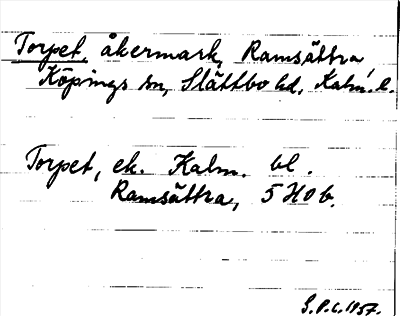 Torpet, åkermark, Ramsättra,
Köpings sn, Slättbo hd, Kalm. l.
Torpet, ek. Kalm. bl.
Ramsättra, 5 H0b.
S.P.C. 1957.